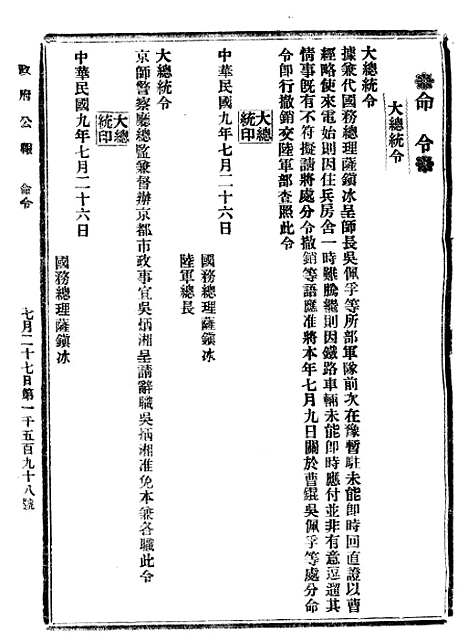 命令
大總統令
大總統令
據兼代國務總理薩鎮冰呈師長吳佩孚等所部軍隊前次在豫暫駐未能卽時回直證以曹
經略使來電始則因住兵房舍一時難騰繼則因鐵路車輛未能卽時應付並非有意逗遛其
情事旣有不符擬請將處分令撤銷等語應准將本年七月九日關於曹錕吳佩孚等處分命
令卽行撤銷交陸軍部查照此令
大總
統印
中華民國九年七月二十六日
國務總理薩鎮冰
陸軍總長
大總統令
京師警察廳總監兼督辦京都市政事宜吳炳湘呈請辭職吳炳湘准免本兼各職此令
大總
統印
中華民國九年七月二十六日
國務總理薩鎮冰
政府公報 命令
七月二十七日第一千五百九十八號